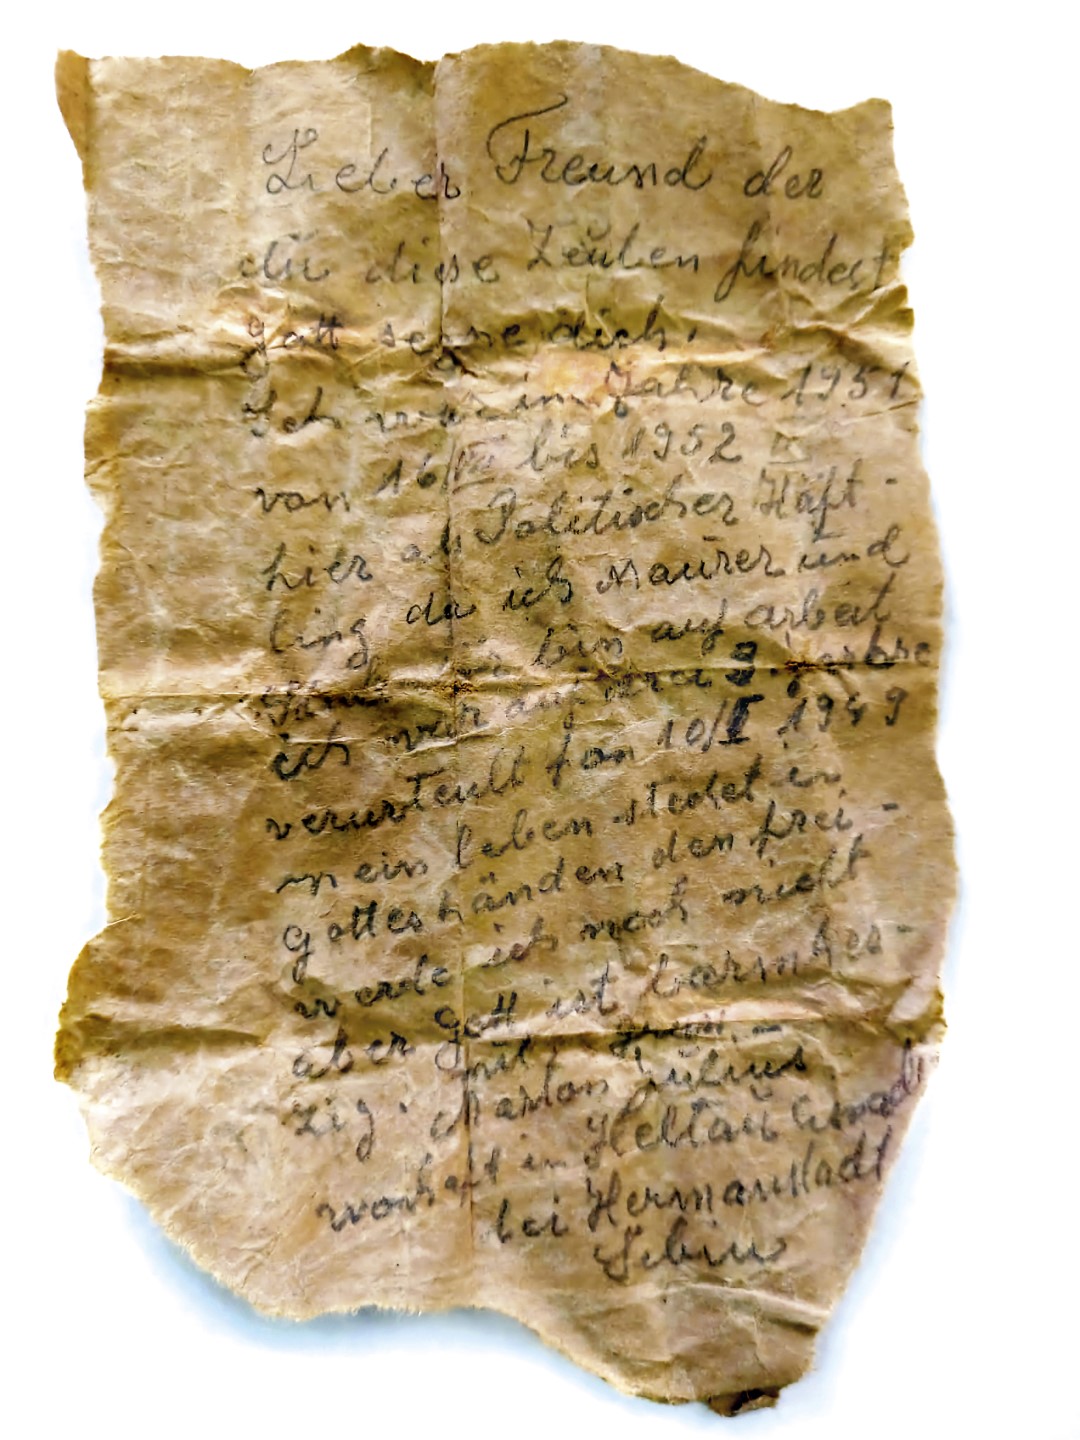 Lieber Freund der
dü diese Zeulen findest
gott segne dich.
Ich war im Jahre 1951
von 16/VII bis 1952 IV
hier als Politischer Häft-
ling da ich Maurer und
bin auf arbeit
ich war auf drei 3. jahre
verurteult fon 10/I 1949
mein leben stedet in
gottes händen den frei-
werde ich noch nicht
aber gott ist barmher-
zig. mit gruß -
Marton Julius
wonhaft in Heltau Cisnadi
bei Hermanstadt
Sibiu